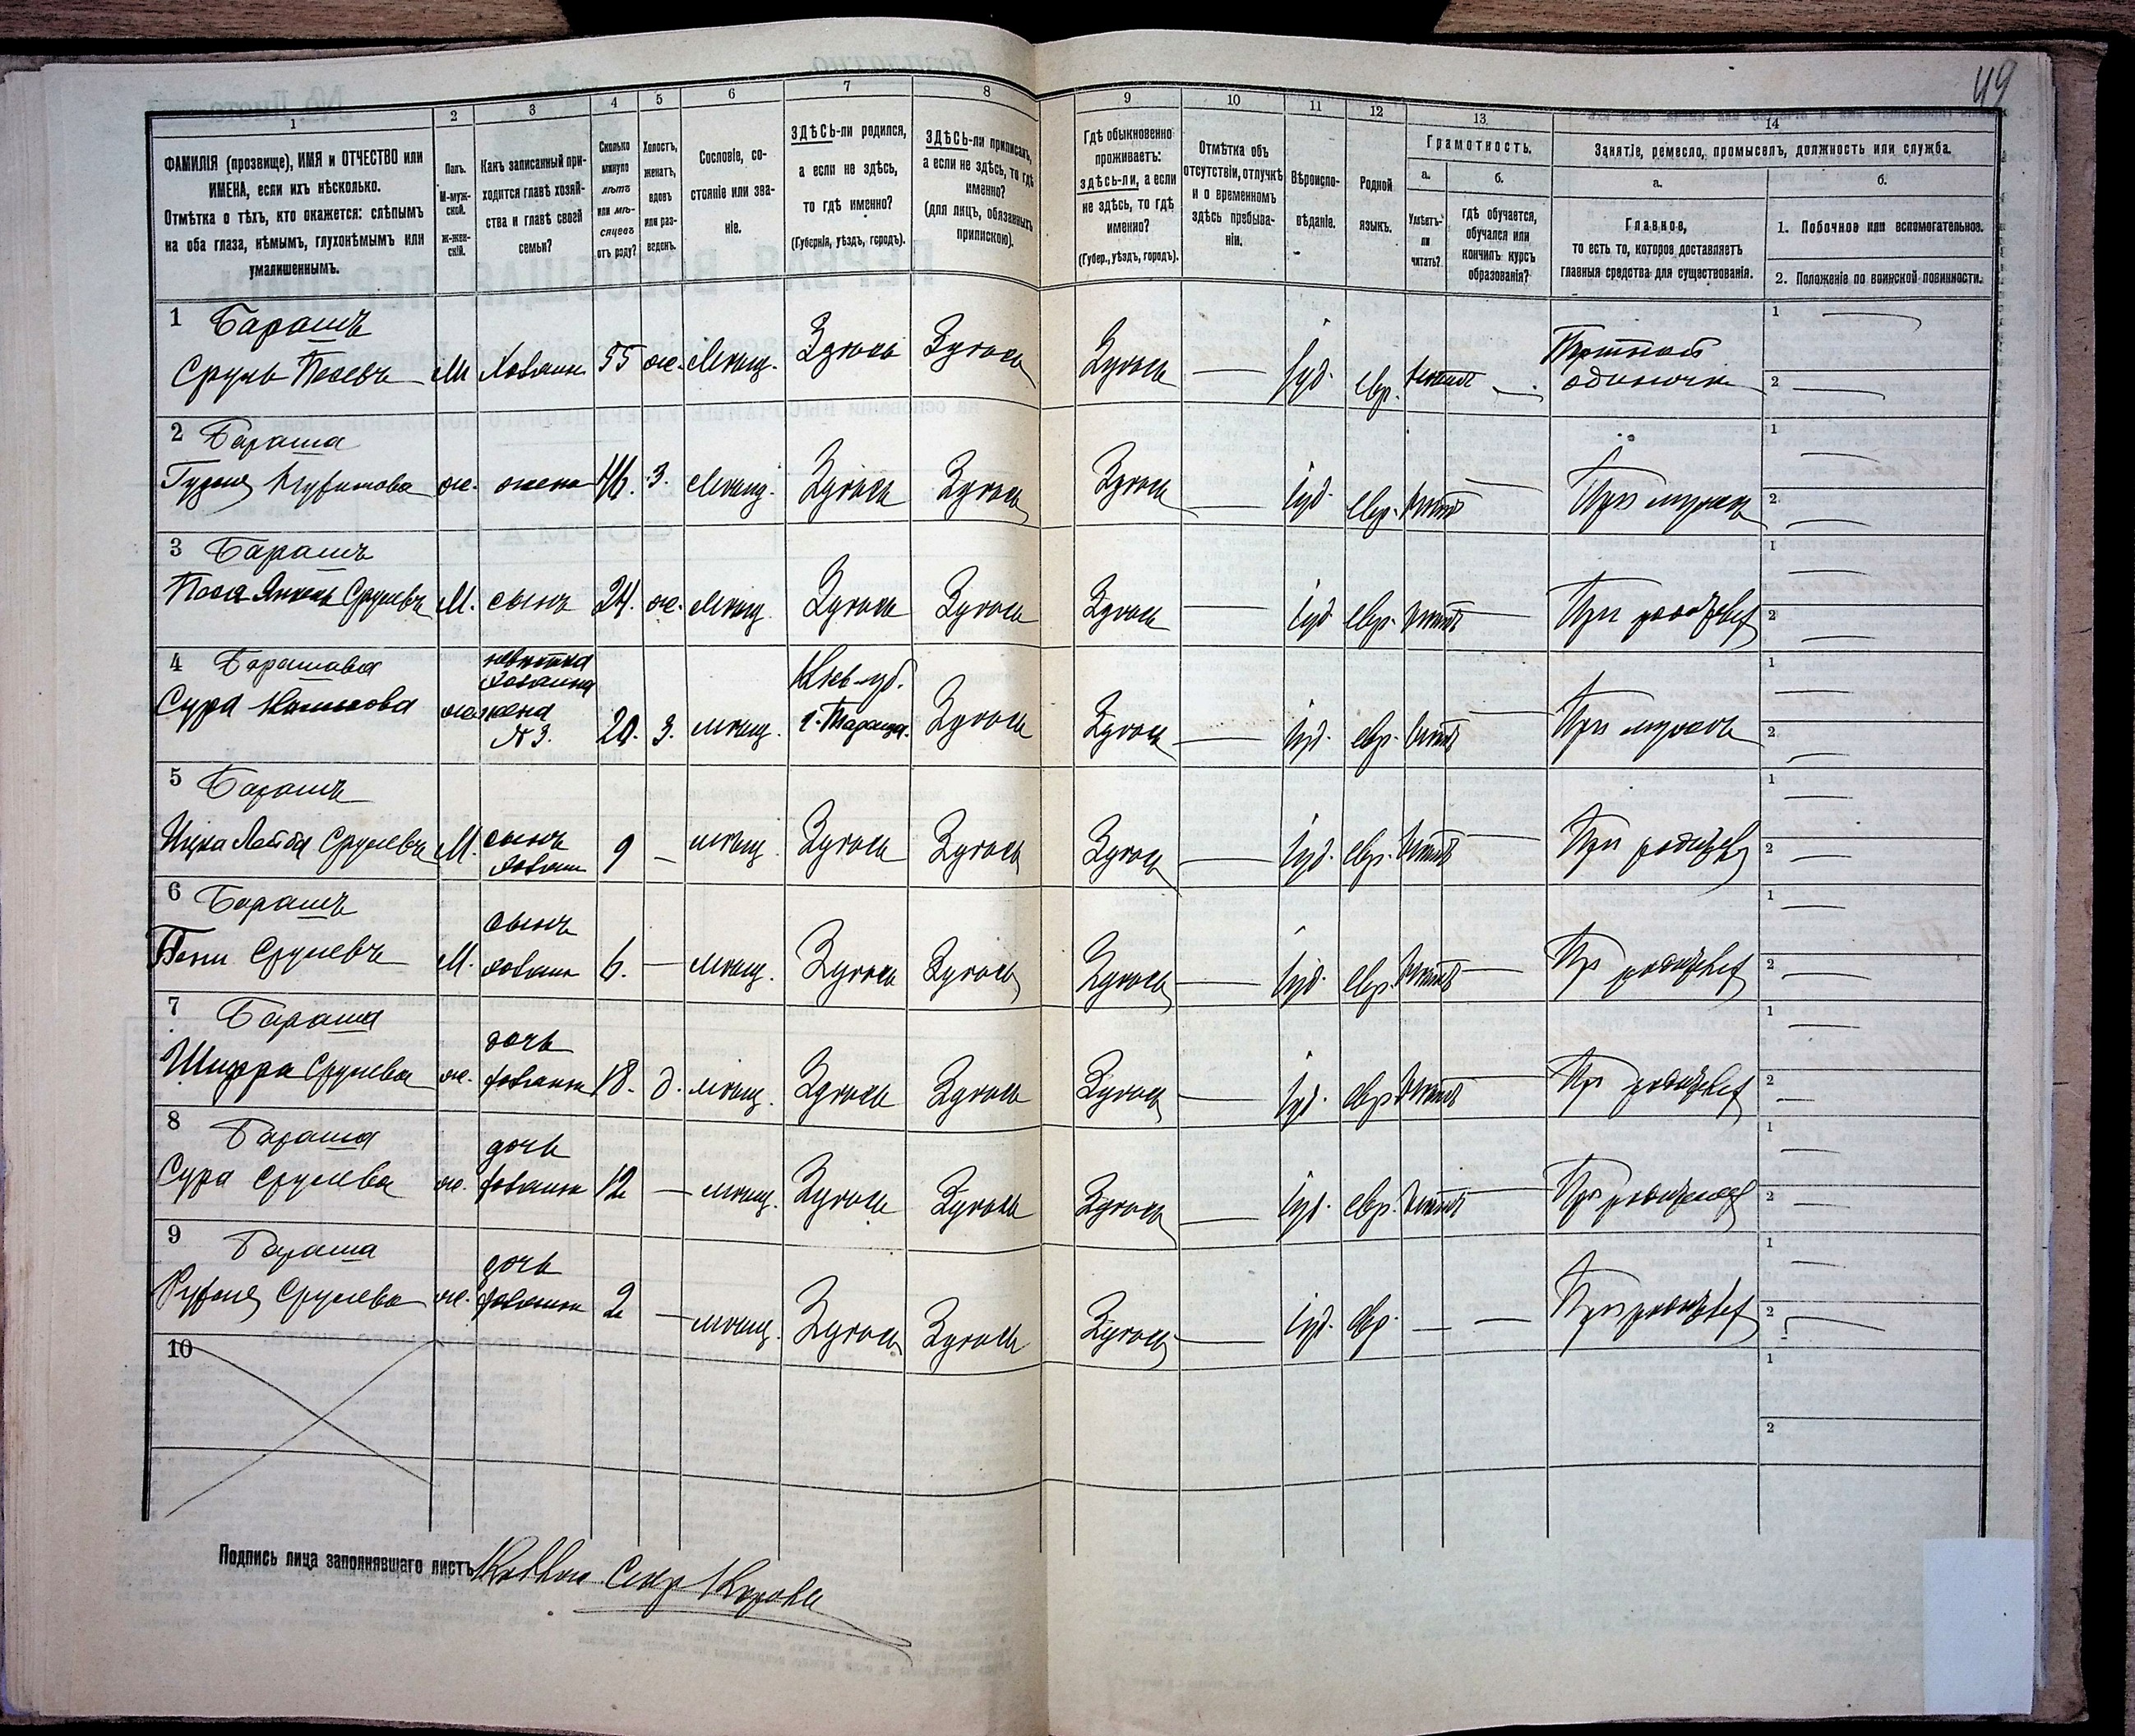 49
1
2
3
4
5
6
7
8
9
10
11
12
13
14
ФАМИЛІЯ (прозвище), ИМЯ и ОТЧЕСТВО или
ИМЕНА, если ихъ нѣсколько.
Отмѣтка о тѣхъ, кто окажется: слѣпымъ
на оба глаза, нѣмымъ, глухонѣмымъ или
умалишеннымъ.
Полъ.
М-муж-
ской.
Ж-жен-
скій.
Какъ записанный при-
ходится главѣ хозяй-
ства и главѣ своей
семьи?
Сколько
минуло
лѣтъ
или мѣ-
сяцевъ
отъ роду?
Холостъ,
женатъ,
вдовъ
или раз-
веденъ.
Сословіе, со-
стояніе или зва-
ніе.
ЗДѢСЬ-ли родился,
а если не здѣсь,
то гдѣ именно?
(Губернія, уѣздъ, городъ).
ЗДѢСЬ-ли приписанъ,
а если не здѣсь, то гдѣ
именно?
(для лицъ, обязанныхъ
припискою).
Гдѣ обыкновенно
проживаетъ:
здѣсь-ли, а если
не здѣсь, то гдѣ
именно?
(Губер., уѣздъ, городъ).
Отмѣтка объ
отсутствіи, отлучкѣ
и о временномъ
здѣсь пребыва-
ніи.
Вѣроиспо-
вѣданіе.
Родной
языкъ.
Грамотность.
а.
Умѣетъ-
ли
читать?
б.
Гдѣ обучается,
обучался или
кончилъ курсъ
образованія?
Занятіе, ремесло, промыселъ, должность или служба.
а.
Главное,
то есть то, которое доставляетъ
главныя средства для существованія.
б.
1. Побочное или вспомогательное.
2. Положеніе по воинской повинности.
1 Барашъ
Сруль М Хозяинъ 55 ж. Мѣщ. Здѣсь Здѣсь Здѣсь — Іуд. Евр. — Портной
одиночка
2 Бараша
ж. жена 46. З. Мѣщ. Здѣсь Здѣсь Здѣсь — Іуд. Евр. — При мужѣ
3 Барашъ
Срулевъ М. сынъ 24. ж. Мѣщ. Здѣсь Здѣсь Здѣсь — Іуд. Евр. — При
4 Барашова невѣстка
Сура ж. жена
№ 3. 20. З. мѣщ. Кіев. губ.
г. Тараща. Здѣсь Здѣсь — Іуд. евр. — При мужѣ
5 Барашъ
Срулевъ М. сынъ
хозяин 9 — мѣщ. Здѣсь Здѣсь Здѣсь — Іуд. евр. — При
6 Барашъ сынъ
Срулевъ М. хозяин 6. — мѣщ. Здѣсь Здѣсь Здѣсь — Іуд. евр. — При
7 Бараша дочь
Шифра Срулева ж. хозяина 18. д. мѣщ. Здѣсь Здѣсь Здѣсь — Іуд. евр. — При
8 Бараша дочь
Сура Срулева ж. хозяина 12 — мѣщ. Здѣсь Здѣсь Здѣсь — Іуд. евр. — При
9 Бараша дочь
Срулева ж. хозяина 2 — мѣщ. Здѣсь Здѣсь Здѣсь — Іуд. евр. — — При
10
Подпись лица заполнявшаго листъ